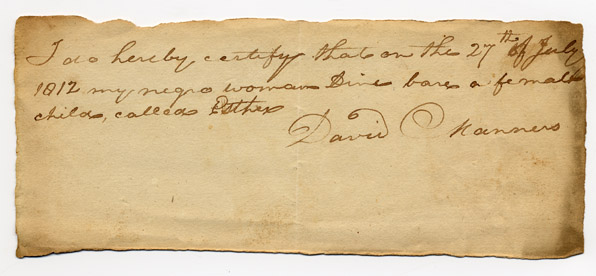 I do hereby certify that on the 27th of July
1812 my negro woman Dine bare a female
child, called Esther
David Manners